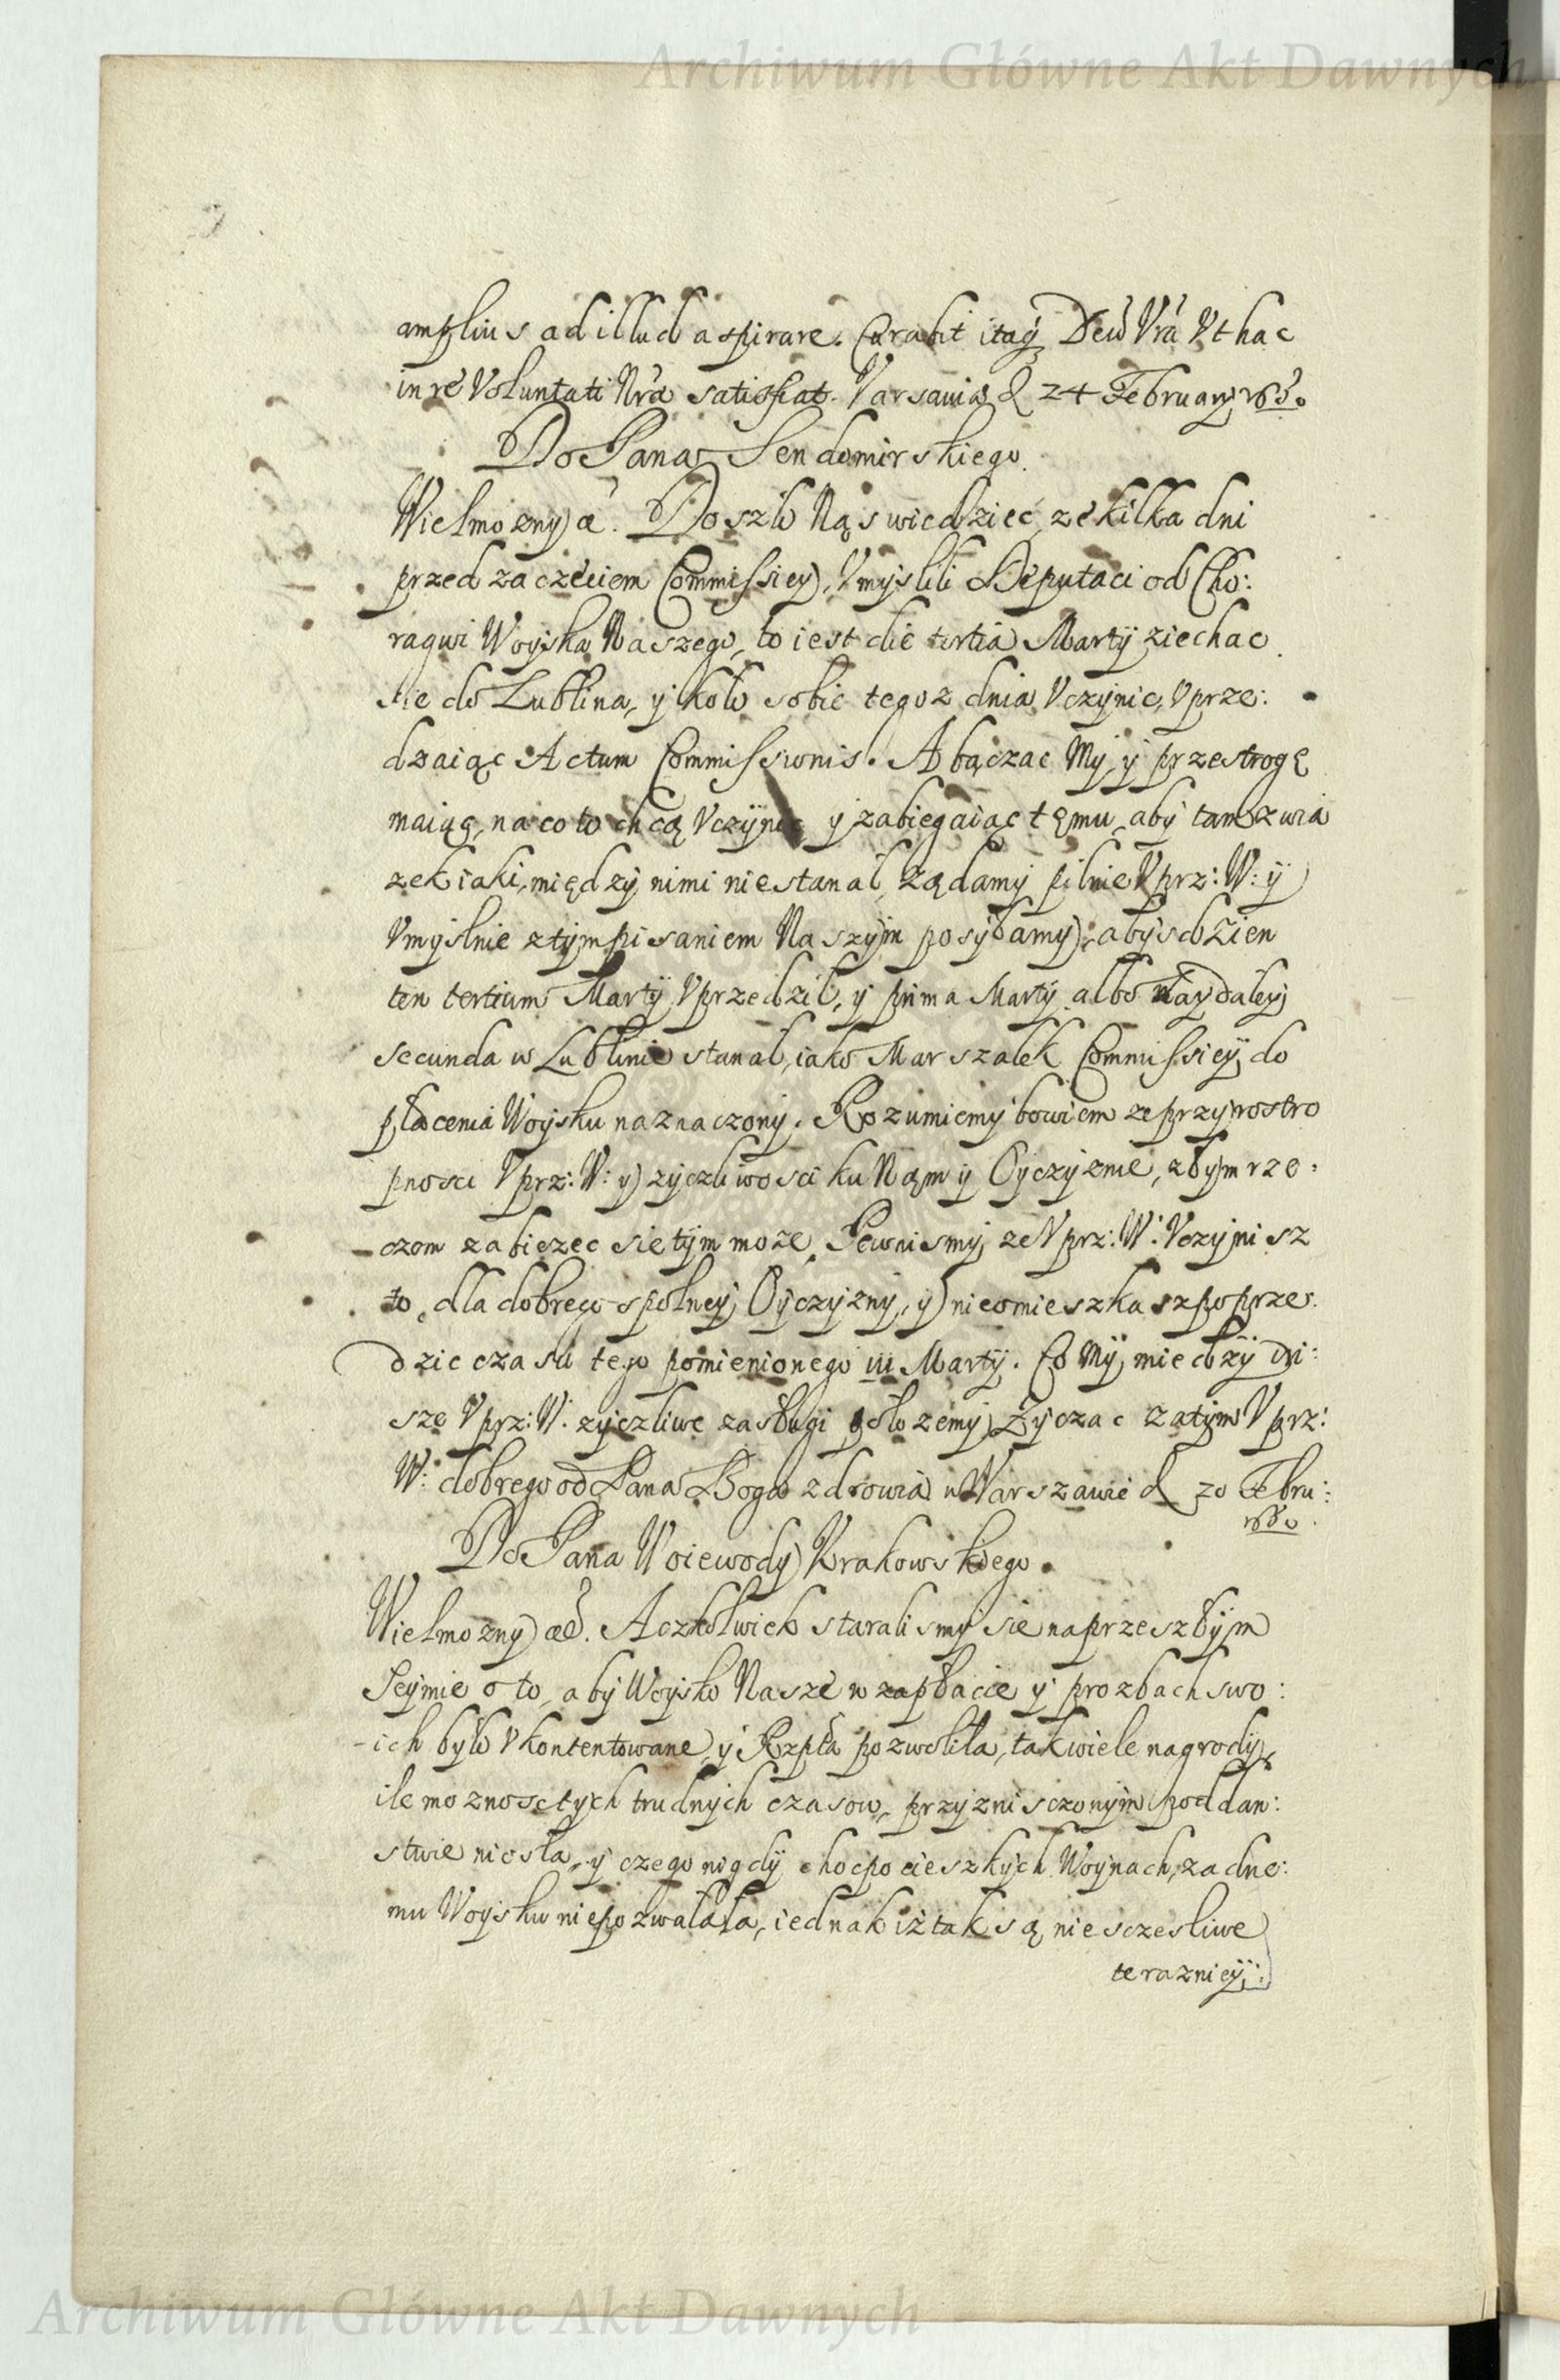 Archiwum Główne Akt Dawnych
amplius ad illud aspirare. Curabit itaq Deuo Vra Vt hac
in re Voluntati Nrae satisfiat. Varsauiae d 24 February 1630
Do Pana Sendomirskiego.
Wielmozny &. Doszlo Nąs wiedziec, ze kilka dni
przed zaczęciem Commissiey, Vmyslili Deputaci od Cho:
rągwi Woyska Naszego, to iest die tertia Marty ziechac
sie do Lublina, y kolo sobie tegoz dnia Vczynic, Vprze:
dzaiąc Actum Commissionis. A bączac My y przestrogę
maiąc, na co to chcą Vczynic, y zabiegaiąc tęmu, aby tam zwia
zek iaki, między nimi niestanal, Ządamy pilnie Vprz: W: y
Vmyslnie z tym pisaniem Naszym posylamy, abys dzien
ten tertium Marty Vprzedzil, y prima Marty albo naydaley
secunda w Lublinie stanal, iako Marszalek Commissiey do
płacenia Woysku naznaczony. Rozumiemy bowiem ze przy rostro
pnosci Vprz: W: y zyczliwosci ku Nąm y Oyczyznie, zlym rze:
czom zabiezec sie tym moze. Pewnismy, ze Vprz: W: Vczynisz
to, dla dobrego spolney Oyczyzny, y nieomieszkasz poprze:
dzic czasu tego pomienionego iii Marty. Co My miedzy in:
sze Vprz: W: zyczliwe zaslugi polozemy, Zyczac zatym Vprz:
W: dobrego od Pana Boga zdrowia w Warszawie d 20 Febru:
1630.
Do Pana Woiewody Krakowskiego.
Wielmozny &. Aczkolwiek staralismy sie na przeszlym
Seymie o to, aby Woysko Nasze w zaplacie y prozbach swo:
ich bylo Vkontentowane, y Rzpta pozwolila, tak wiele nagrody,
ile moznosc tych trudnych czasow, przy znisczonym poddan:
stwie niosla, y czego nigdy choc po cieszkych Woynach, zadne:
mu Woysku niepozwalala, iednak iz tak są niesczesliwe
terazniey:
Archiwum Główne Akt Dawnych